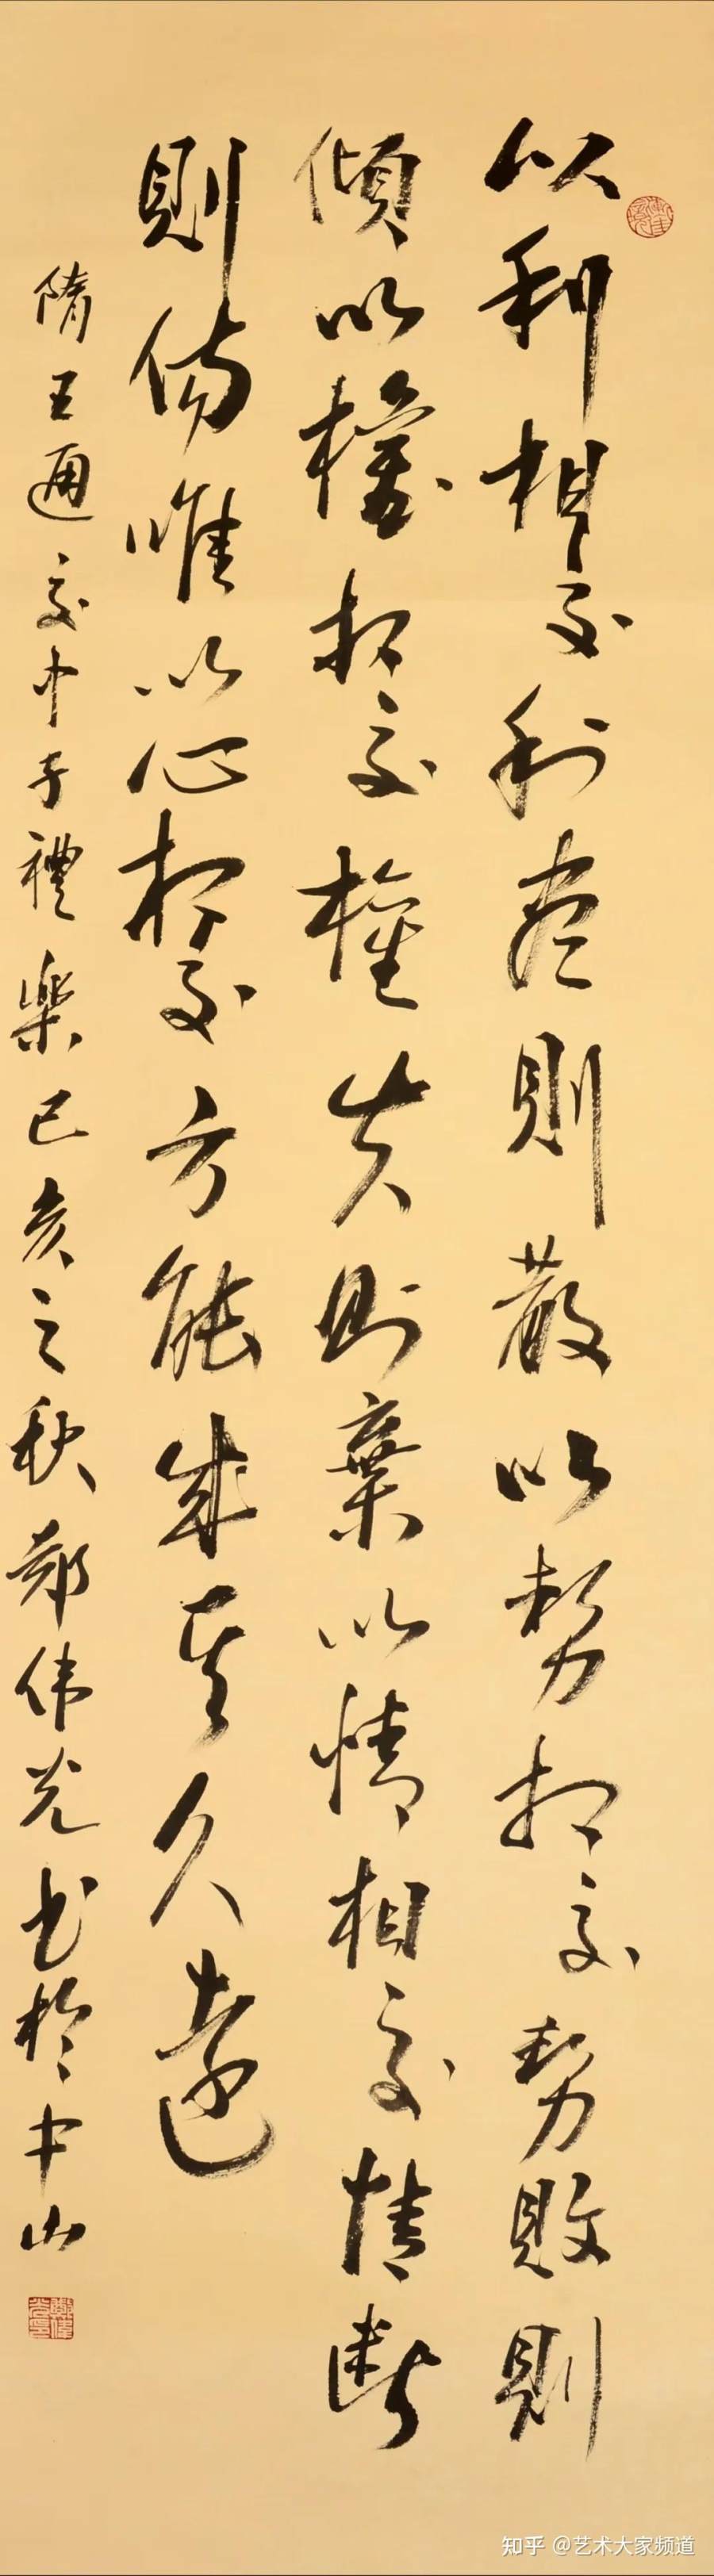 以利相交利尽則散以勢相交勢敗則
傾以權相交權失則棄以情相交情斷
則傷唯以心相交方能成其久遠
隋王通文中子禮樂己亥之秋郑伟光书於中山
知乎 @艺术大家频道